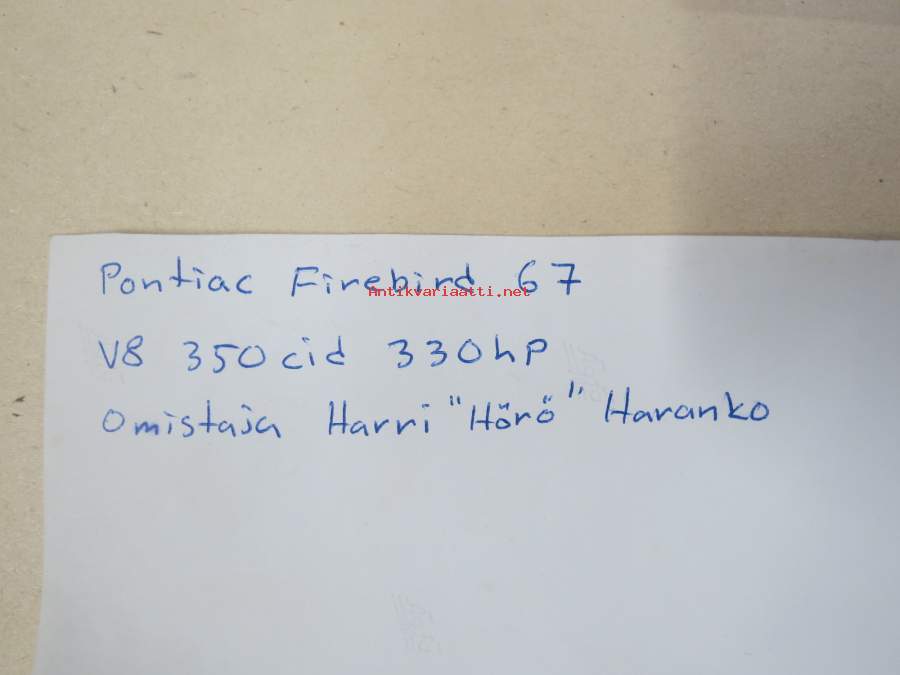 Pontiac Firebird 67
Antikvariaatti.net
V8 350 cid 330hp
Omistaja Harri "Hörö" Haranko